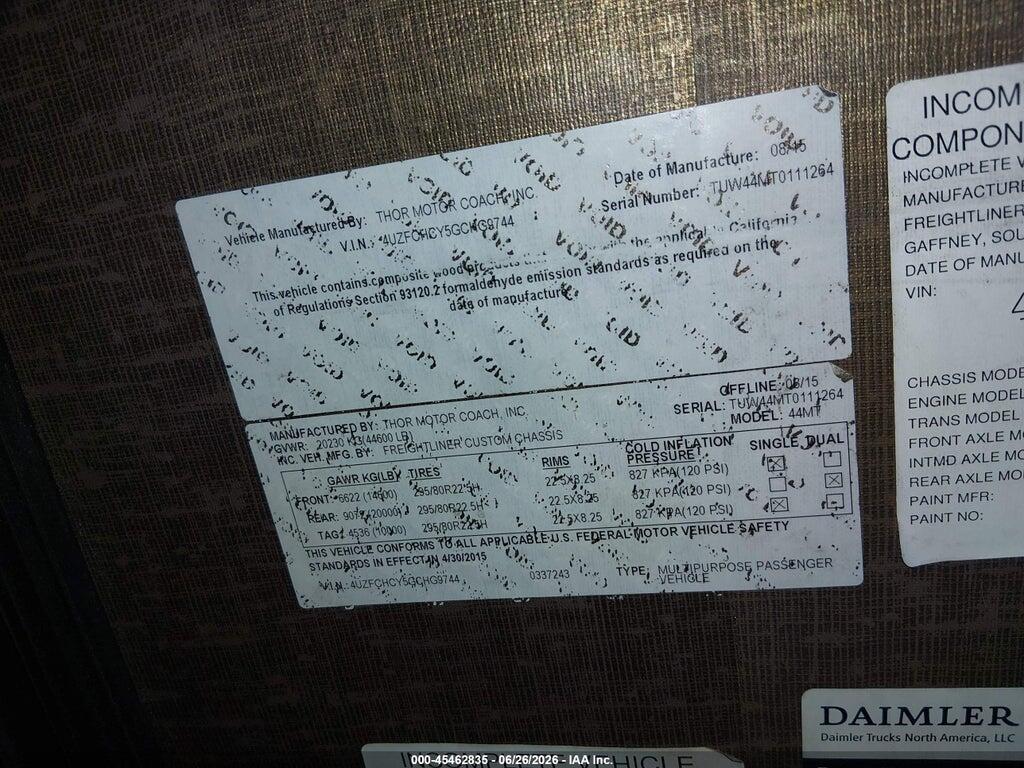 Vehicle Manufactured By: THOR MOTOR COACH, INC
V.I.N.: 4UZFCHCY5GCHG9744
Date of Manufacture: 08/15
Serial Number: TUW44MT0111264
This vehicle contains composite wood products with the applicable California
of Regulations Section 93120.2 formaldehyde emission standards as required on the
date of manufacture.
MANUFACTURED BY: THOR MOTOR COACH, INC.
GVWR: 20230 KG(44600 LB)
INC. VEH. MFG. BY: FREIGHTLINER CUSTOM CHASSIS
OFFLINE: 08/15
SERIAL: TUW44MT0111264
MODEL: 44MT
GAWR KG(LB) TIRES RIMS COLD INFLATION PRESSURE SINGLE DUAL
FRONT: 6622 (14600) 295/80R22.5H 22.5X8.25 827 KPA(120 PSI)
REAR: (20000) 295/80R22.5H 22.5X8.25 827 KPA(120 PSI)
TAG: 4536 (10000) 295/80R22.5H 22.5X8.25 827 KPA(120 PSI)
THIS VEHICLE CONFORMS TO ALL APPLICABLE U.S. FEDERAL MOTOR VEHICLE SAFETY
STANDARDS IN EFFECT IN 4/30/2015
V.I.N.: 4UZFCHCY5GCHG9744 0337243 TYPE: MULTIPURPOSE PASSENGER
VEHICLE
INCOM
COMPON
INCOMPLETE V
MANUFACTURE
FREIGHTLINER
GAFFNEY, SOU
DATE OF MANU
VIN: 4
CHASSIS MODE
ENGINE MODEL
TRANS MODEL
FRONT AXLE MO
INTMD AXLE MO
REAR AXLE MO
PAINT MFR:
PAINT NO:
DAIMLER
Daimler Trucks North America, LLC
INCOMPLETE VEHICLE
000-45462835 - 06/26/2026 - IAA Inc.